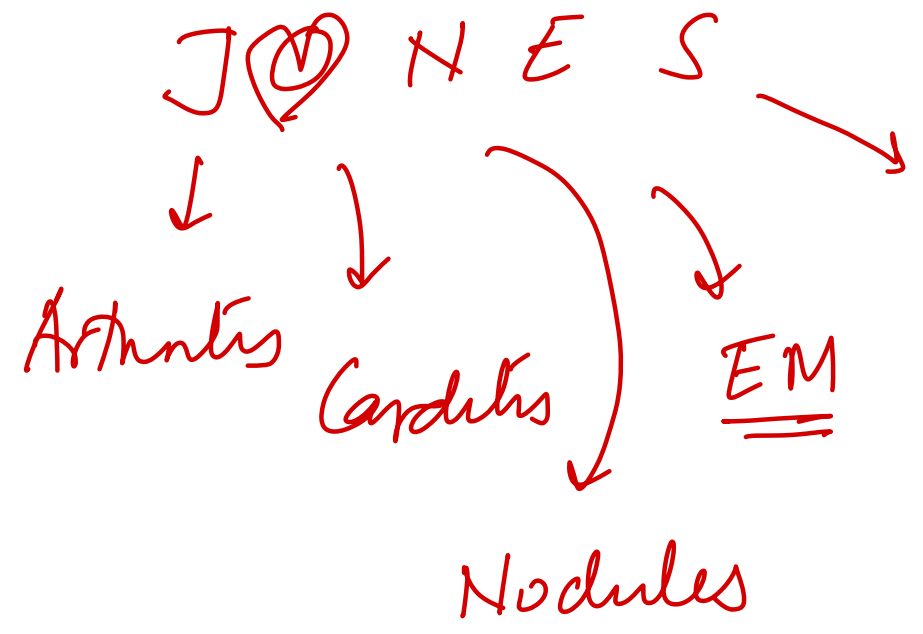 J O N E S
Arthritis
Carditis
EM
Nodules